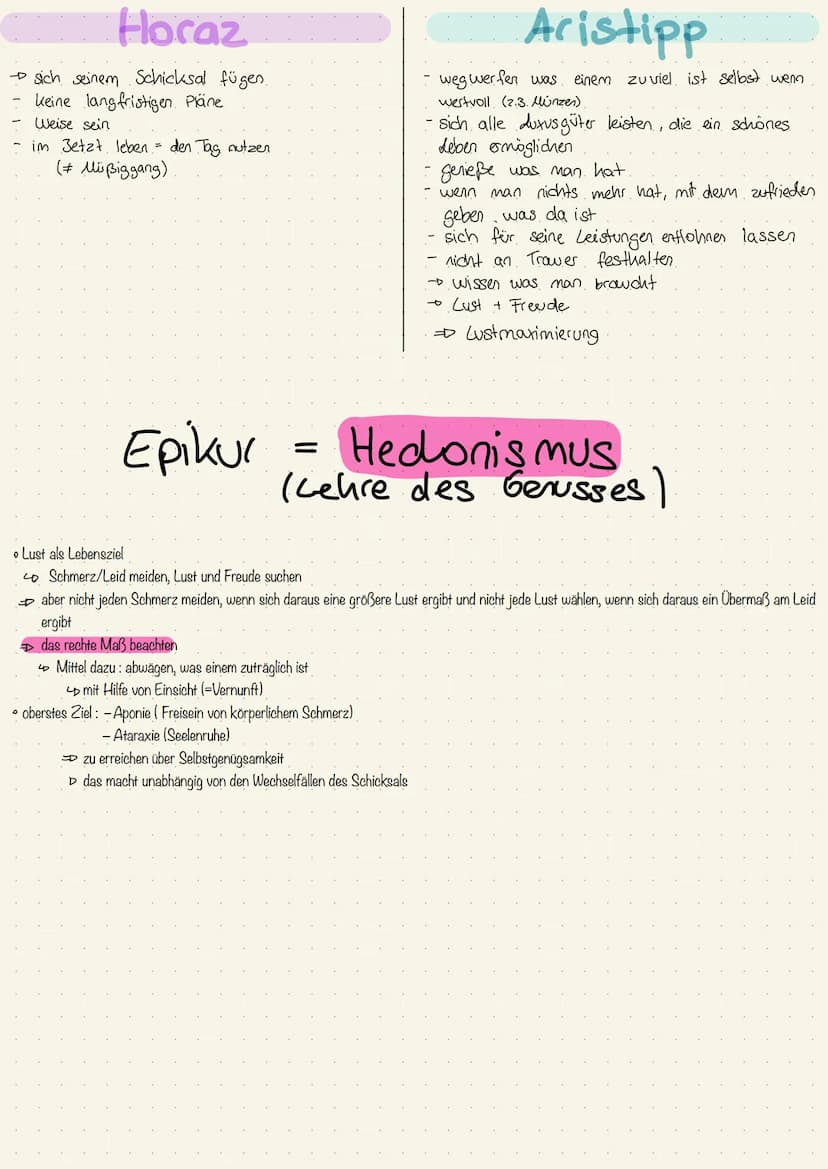 Horaz
→ sich seinem Schicksal fügen
- keine langfristigen Pläne
- Weise sein
- im Jetzt leben = den Tag nutzen
(≠ Müßiggang)
Aristipp
- wegwerfen was einem zuviel ist selbst wenn
wertvoll (z.B. Münzen)
- sich alle Luxusgüter leisten, die ein schönes
Leben ermöglichen
- genieße was man hat
- wenn man nichts mehr hat, mit dem zufrieden
geben, was da ist
- sich für seine Leistungen entlohnen lassen
- nicht an Trauer festhalten
→ wissen was man braucht
→ Lust + Freude
⇒ Lustmaximierung
Epikur = Hedonismus
(Lehre des Genusses)
• Lust als Lebensziel
↳ Schmerz/Leid meiden, Lust und Freude suchen
⇒ aber nicht jeden Schmerz meiden, wenn sich daraus eine größere Lust ergibt und nicht jede Lust wählen, wenn sich daraus ein Übermaß am Leid
ergibt
⇒ das rechte Maß beachten
↳ Mittel dazu : abwägen, was einem zuträglich ist
↳ mit Hilfe von Einsicht (=Vernunft)
• oberstes Ziel : – Aponie ( Freisein von körperlichem Schmerz)
– Ataraxie (Seelenruhe)
⇒ zu erreichen über Selbstgenügsamkeit
▷ das macht unabhängig von den Wechselfällen des Schicksals